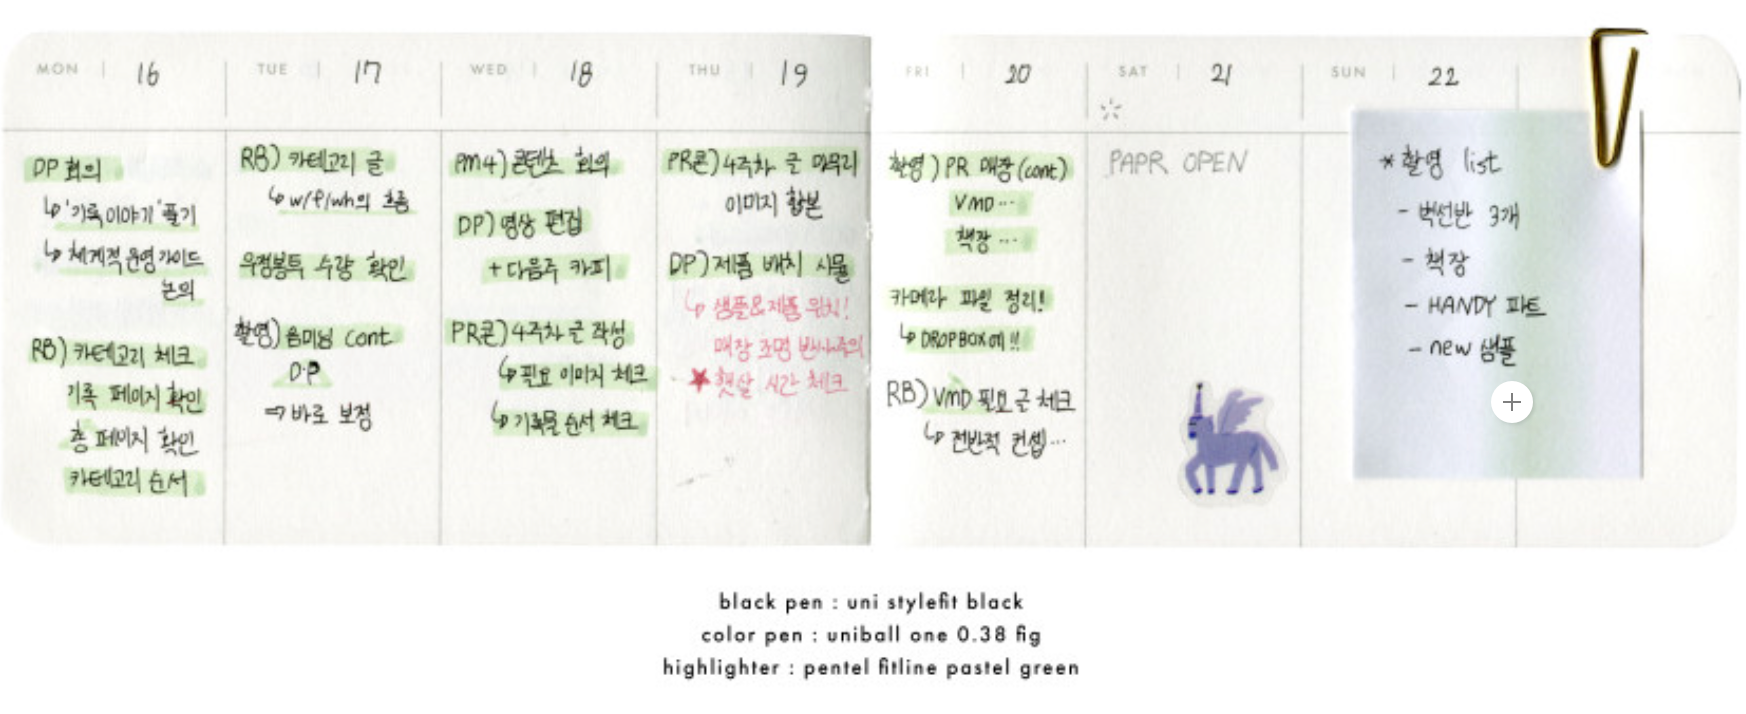 MON 16
DP 회의
↳ '기록이야기' 풀기
↳ 체계적 운영가이드
논의
RB) 카테고리 체크
기록 페이지 확인
총 페이지 확인
카테고리 순서
TUE 17
RB) 카테고리 글
↳ w/f/wh의 흐름
우정봉투 수량 확인
촬영) 음미님 cont
D.P
⇒ 바로 보정
WED 18
PM4) 콘텐츠 회의
DP) 영상 편집
+ 다음주 카피
PR콘) 4주차 글 작성
↳ 필요 이미지 체크
↳ 기록물 순서 체크
THU 19
PR콘) 4주차 글 마무리
이미지 합본
DP) 제품 배치
↳ 샘플&제품 위치!
매장 조명
★ 햇살 시간 체크
FRI 20
촬영) PR 매장 (cont)
VMD...
책장...
카메라 파일 정리!
↳ DROPBOX에!!
RB) VMD 필요 글 체크
↳ 전반적 컨셉...
SAT 21
PAPR OPEN
SUN 22
* 촬영 list
- 벽선반 3개
- 책장
- HANDY 파트
- new 샘플
black pen : uni stylefit black
color pen : uniball one 0.38 fig
highlighter : pentel fitline pastel green